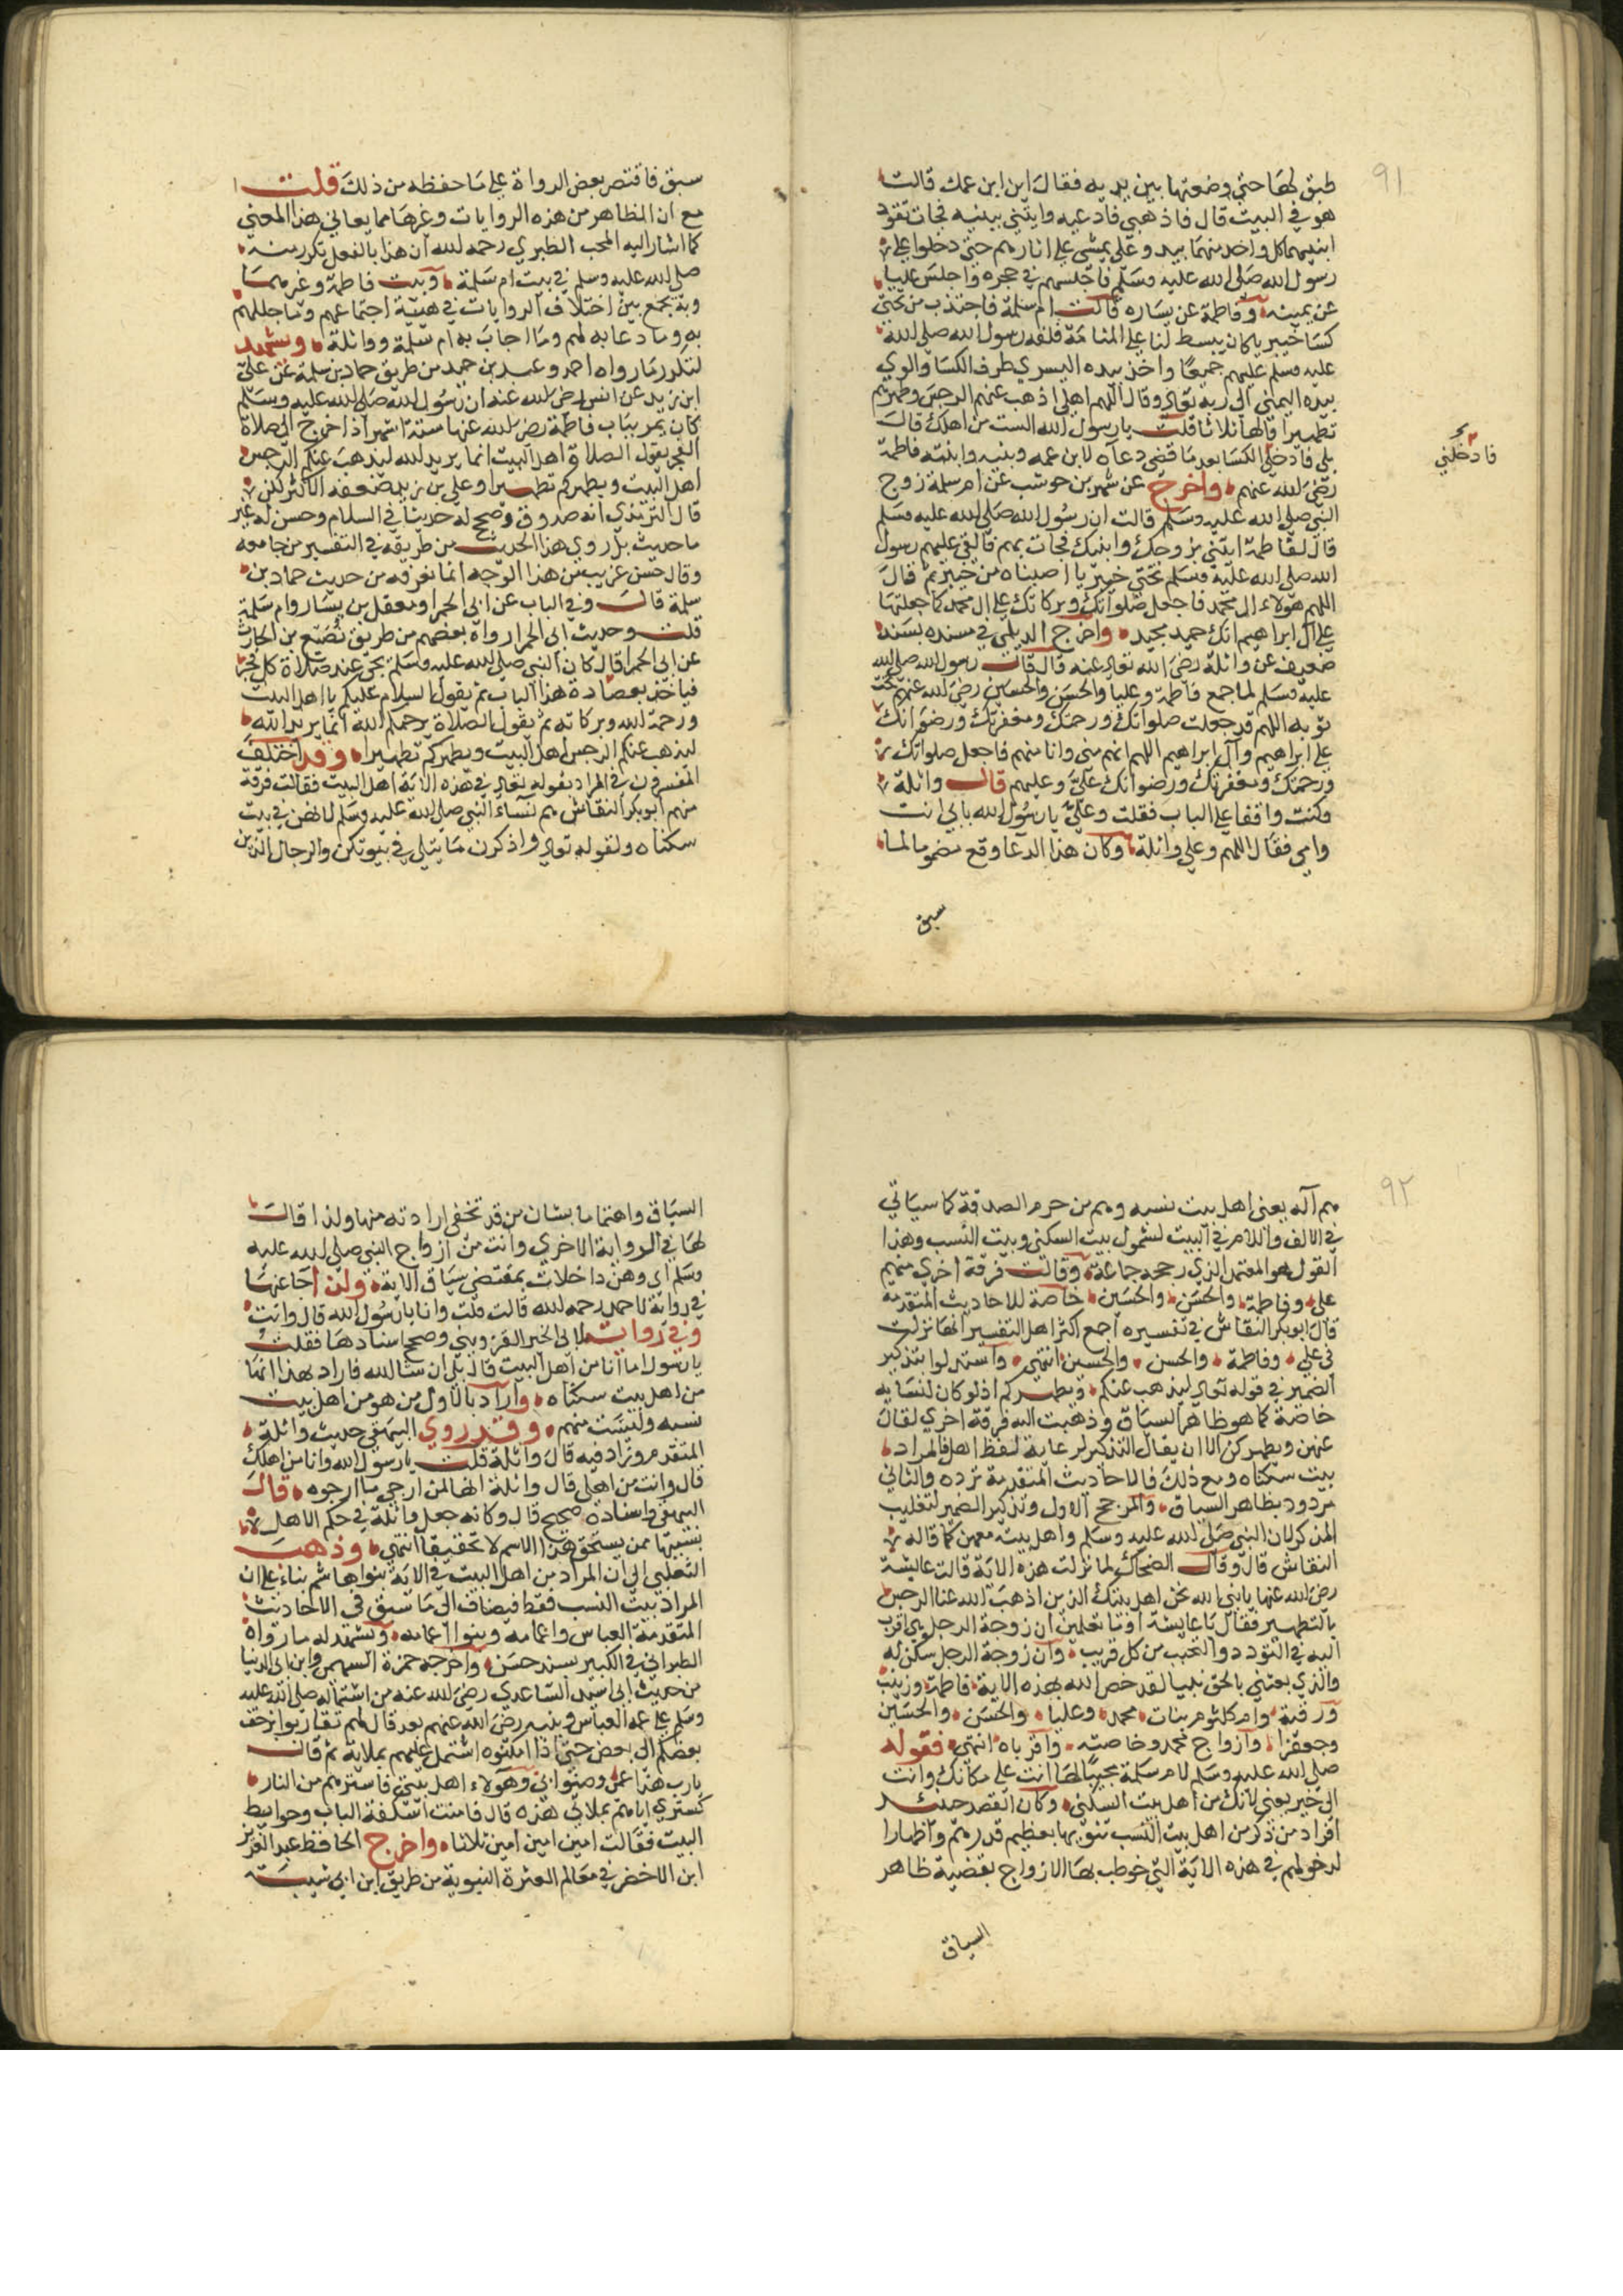 ٩١
طبق لها حتى وضعتها بين يديه فقال اين ابن عمك قالت
هو في البيت قال فاذهبي فادعيه وايتيني ببنيه فجات تقود
ابنيهما كل واحد منهما بيد وعلي يمشي على اثارهم حتى دخلوا على
رسول الله صلى الله عليه وسلم فاجلسهم في حجره واجلس عليا
عن يمينه وفاطمة عن يساره قالت ام سلمة فاجتذب من تحتي
كسا خيبريا كان يبسط لنا على المنامة فلفه رسول الله صلى الله
عليه وسلم عليهم جميعا واخذ بيده اليسري طرف الكسا والوي
بيده اليمني الى ربه تعالى وقال اللهم اهلي اذهب عنهم الرجس وطهرهم
تطهيرا قالها ثلاثا قلت يا رسول الله الست من اهلك قال
بلى فادخلي الكسا بعد ما قضى دعاه لابن عمه وبنيه وابنته فاطمة
فادخلني
رضي الله عنهم واخرج عن شهر بن حوشب عن ام سلمة زوج
النبي صلى الله عليه وسلم قالت ان رسول الله صلى الله عليه وسلم
قال لفاطمة ايتيني بزوجك وابنيك فجات بهم فالقى عليهم رسول
الله صلى الله عليه وسلم تحتي خيبريا اصبناه من خيبر ثم قال
اللهم هولاء ال محمد فاجعل صلواتك وبركاتك على ال محمد كما جعلتها
على آل ابراهيم انك حميد مجيد واخرج الديلي في مسنده بسند
ضعيف عن واثلة رضي الله تعالى عنه قال قال رسول الله صلى الله
عليه وسلم لما جمع فاطمة وعليا والحسن والحسين رضي الله عنهم تحت
ثوبه اللهم قد جعلت صلواتك ورحمتك ومغفرتك ورضوانك
على ابراهيم وآل ابراهيم اللهم انهم مني وانا منهم فاجعل صلواتك
ورحمتك ومغفرتك ورضوانك علي وعليهم قال واثلة
وكنت واقفا على الباب فقلت وعليّ يا رسول الله بابي انت
وامي فقال اللهم وعلى واثلة وكان هذا الدعا وقع مضموما لما
سبق
سبق فاقتصر بعض الرواة على ما حفظه من ذلك قلت
مع ان الظاهر من هذه الروايات وغيرها مما يعاني هذا المعنى
كما اشار اليه المحب الطبري رحمه الله ان هذا بالفعل تكرر منه
صلى الله عليه وسلم في بيت ام سلمة وبيت فاطمة وغيرهما
وبه يجمع بين اختلاف الروايات في هيئة اجتماعهم وما جللهم
به وما دعا به لهم وما اجاب به ام سلمة وواثلة ويشهد
لتكرر ما رواه احمد وعبد بن حميد من طريق حماد بن سلمة عن علي
ابن زيد عن انس رضي الله عنه ان رسول الله صلى الله عليه وسلم
كان يمر بباب فاطمة رضي الله عنها ستة اشهر اذا خرج الى صلاة
الفجر يقول الصلاة اهل البيت انما يريد الله ليذهب عنكم الرجس
اهل البيت ويطهركم تطهيرا وعلي بن زيد ضعفه الاكثر لكن
قال الترمذي انه صدوق وصحح له حديثا في السلام وحسن له غير
ما حديث بل روى هذا الحديث من طريقه في التفسير من جامعه
وقال حسن غريب من هذا الوجه انما نعرفه من حديث حماد بن
سلمة قال وفي الباب عن ابي الحمرا ومعقل بن يسار وام سلمة
قلت وحديث ابي الحمرا رواه بعضهم من طريق نفيع بن الحارث
عن ابي الحمرا قال كان النبي صلى الله عليه وسلم يجي عند صلاة كل فجر
فياخذ بعضادة هذا الباب ثم يقول السلام عليكم يا اهل البيت
ورحمة الله وبركاته ثم يقول الصلاة يرحمكم الله انما يريد الله
ليذهب عنكم الرجس اهل البيت ويطهركم تطهيرا وقد اختلف
المفسرون في المراد بقوله تعالى في هذه الاية اهل البيت فقالت فرقة
منهم ابو بكر النقاش هم نساء النبي صلى الله عليه وسلم لانهن في بيت
سكناه ولقوله تعالى واذكرن ما يتلى في بيوتكن والرجال الذين
٩٢
هم آله يعني اهل بيت نسبه وهم من حرم الصدقة كما سياتي
في الالف واللام في البيت لشمول بيت السكنى وبيت النسب وهذا
القول هو المعتمد الذي رجحه جماعة وقالت فرقة اخري منهم
علي وفاطمة والحسن والحسين خاصة للاحاديث المتقدمة
قال ابو بكر النقاش في تفسيره اجمع اكثر اهل التفسير انها نزلت
في علي وفاطمة والحسن والحسين انتهى واستدلوا بتذكير
الضمير في قوله تعالى ليذهب عنكم ويطهركم اذ لو كان لنسايه
خاصة كما هو ظاهر السياق وذهبت اليه فرقة اخري لقال
عنهن ويطهركن الا ان يقال التذكير لرعاية لفظ اهل فالمراد
بيت سكناه ومع ذلك فالاحاديث المتقدمة ترده والثاني
مردود بظاهر السياق والمرجح الاول وتذكير الضمير لتغليب
المذكر لان النبي صلى الله عليه وسلم واهل بيته معهن كما قاله
النقاش قال وقال الضحاك لما نزلت هذه الاية قالت عايشة
رضي الله عنها يا نبي الله نحن اهل بيتك الذين اذهب الله عنا الرجس
بالتطهير فقال يا عايشة اوما تعلمين ان زوجة الرجل هي اقرب
اليه في التودد والتحبب من كل قريب وان زوجة الرجل سكن له
والذي بعثني بالحق نبيا لقد خص الله بهذه الاية فاطمة وزينب
ورقية وام كلثوم بنات محمد وعليا والحسن والحسين
وجعفرا وازواج محمد وخاصته واقرباه انتهى فقوله
صلى الله عليه وسلم لام سلمة مجيبا لها انت على مكانك وانت
الى خير يعني لانك من اهل بيت السكنى وكان القصد حينئذ
افراد من ذكر من اهل بيت النسب تنويها بعظيم قدرهم واظهارا
لدخولهم في هذه الاية التي خوطب بها الازواج بقضية ظاهر
السياق
السياق واهتماما بشان من قد تخفى ارادته منها ولذا قال
لها في الرواية الاخري وانت من ازواج النبي صلى الله عليه
وسلم اي وهن داخلات بمقتضى سياق الاية ولذا جا عنها
في رواية لاحمد رحمه الله قالت قلت وانا يا رسول الله قال وانت
وفي رواية لابي الخير القزويني وصحح اسنادها فقلت
يا رسول اما انا من اهل البيت قال بلى ان شا الله فاراد بهذا انها
من اهل بيت سكناه واراد بالاول من هو من اهل بيت
نسبه وليست منهم وقد روي البيهقي حديث واثلة
المتقدم وزاد فيه قال واثلة قلت يا رسول الله وانا من اهلك
قال وانت من اهلي قال واثلة انها لمن ارجى ما ارجوه قال
البيهقي واسناده صحيح قال وكانه جعل واثلة في حكم الاهل
تشبيها ممن يستحق هذا الاسم لا تحقيقا انتهى وذهب
الثعلبي الى ان المراد من اهل البيت في الاية بنوا هاشم بناء على ان
المراد بيت النسب فقط فيضاف الى ما سبق في الاحاديث
المتقدمة العباس واعمامه وبنوا اعمامه ويشهد له ما رواه
الطبراني في الكبير بسند حسن واخرجه حمزة السهمي وابن ابي الدنيا
من حديث ابي اسيد الساعدي رضي الله عنه من اشتماله صلى الله عليه
وسلم على عمه العباس وبنيه رضي الله عنهم بعد قال لهم تقاربوا يزحف
بعضكم الى بعض حتى اذا امكنوه اشتمل عليهم بملاية ثم قال
يا رب هذا عمي وصنوا ابي وهولاء اهل بيتي فاسترهم من النار
كستري اياهم بملاتي هذه قال فامنت اسكفة الباب وحوايط
البيت فقالت امين امين امين ثلاثا واخرج الحافظ عبد العزيز
ابن الاخضر في معالم العترة النبوية من طريق ابن ابي شيبة